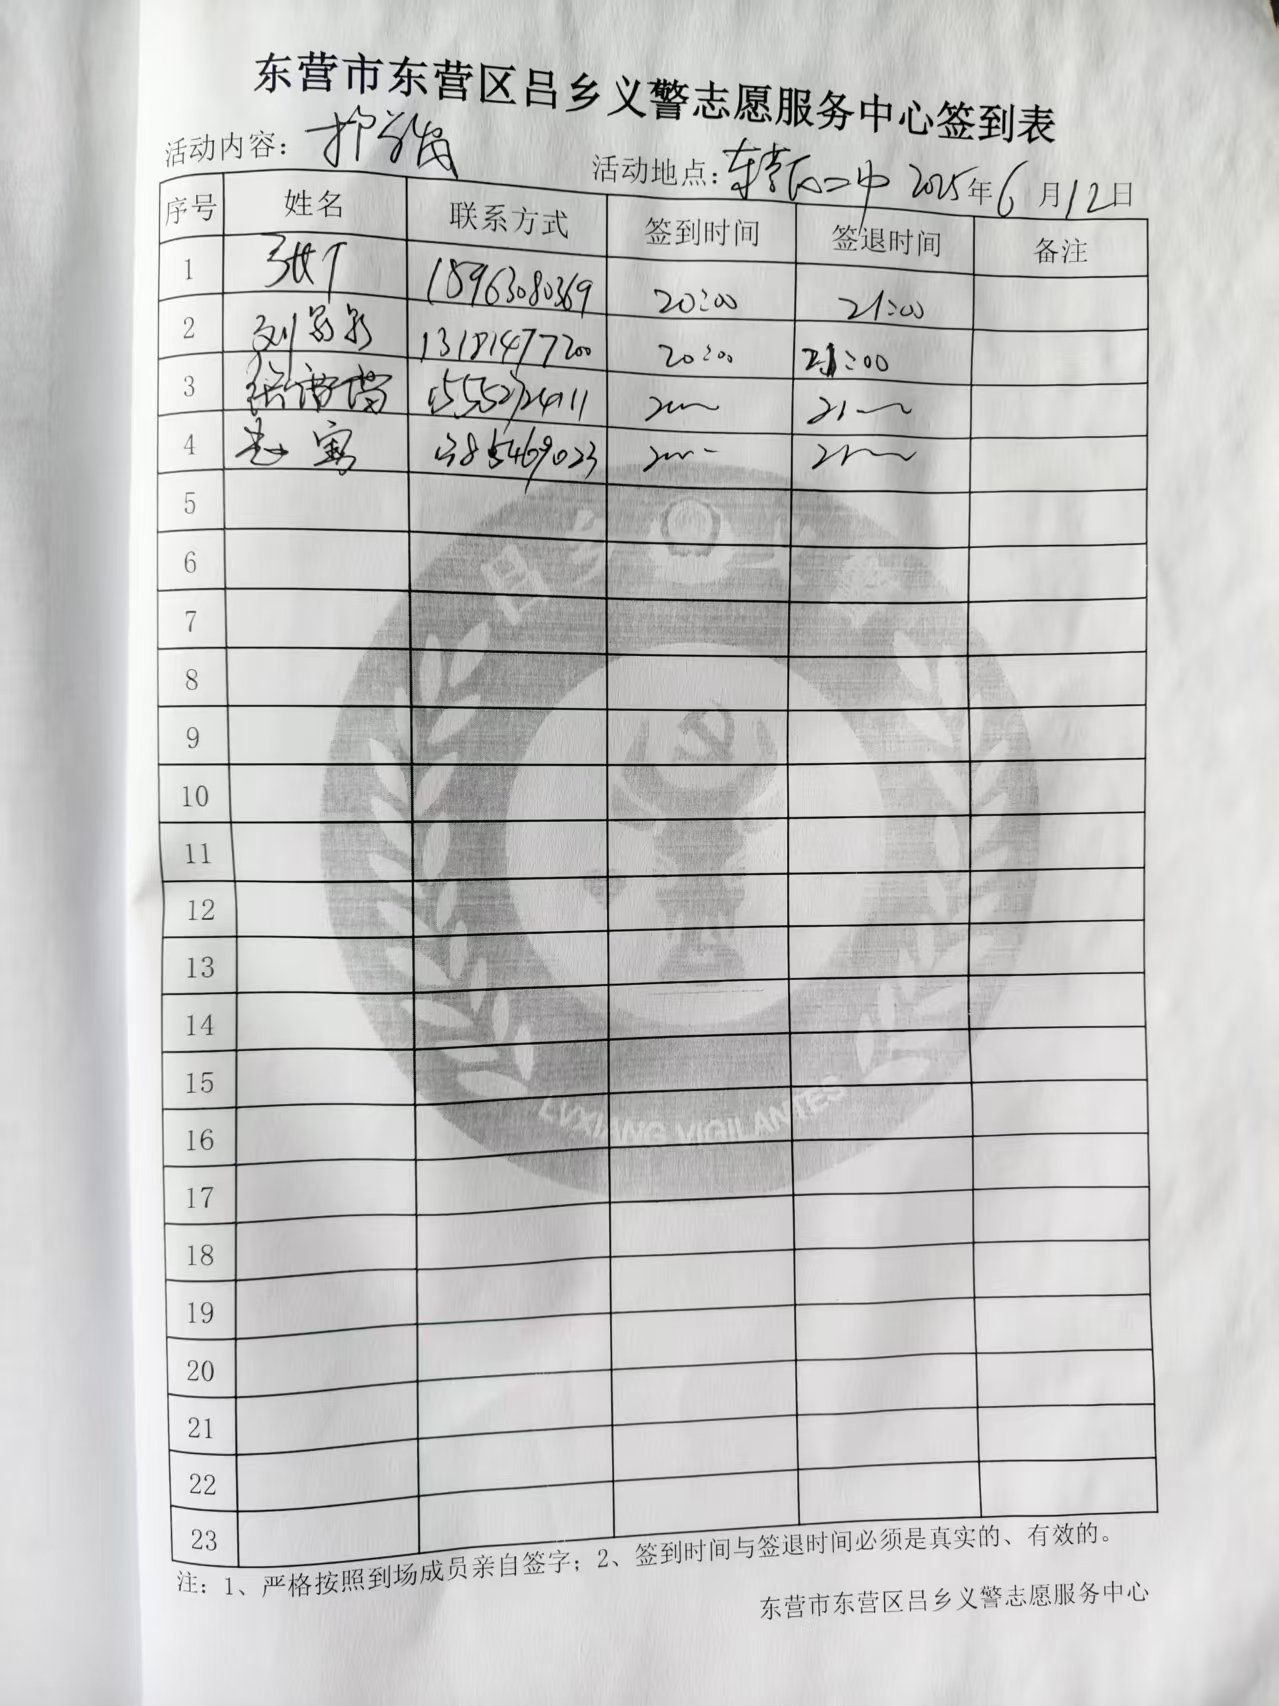 东营市东营区吕乡义警志愿服务中心签到表
活动内容： 护学岗 活动地点： 东营区二中 2025年6月12日
序号 姓名 联系方式 签到时间 签退时间 备注
1 18963080369 20:00 21:00
2 刘 13181477200 20:00 21:00
3
4
5
6
7
8
9
10
11
12
13
14
15
16
17
18
19
20
21
22
23
注：1、严格按照到场成员亲自签字；2、签到时间与签退时间必须是真实的、有效的。
东营市东营区吕乡义警志愿服务中心
吕乡义警
LVXIANG VIGILANTES